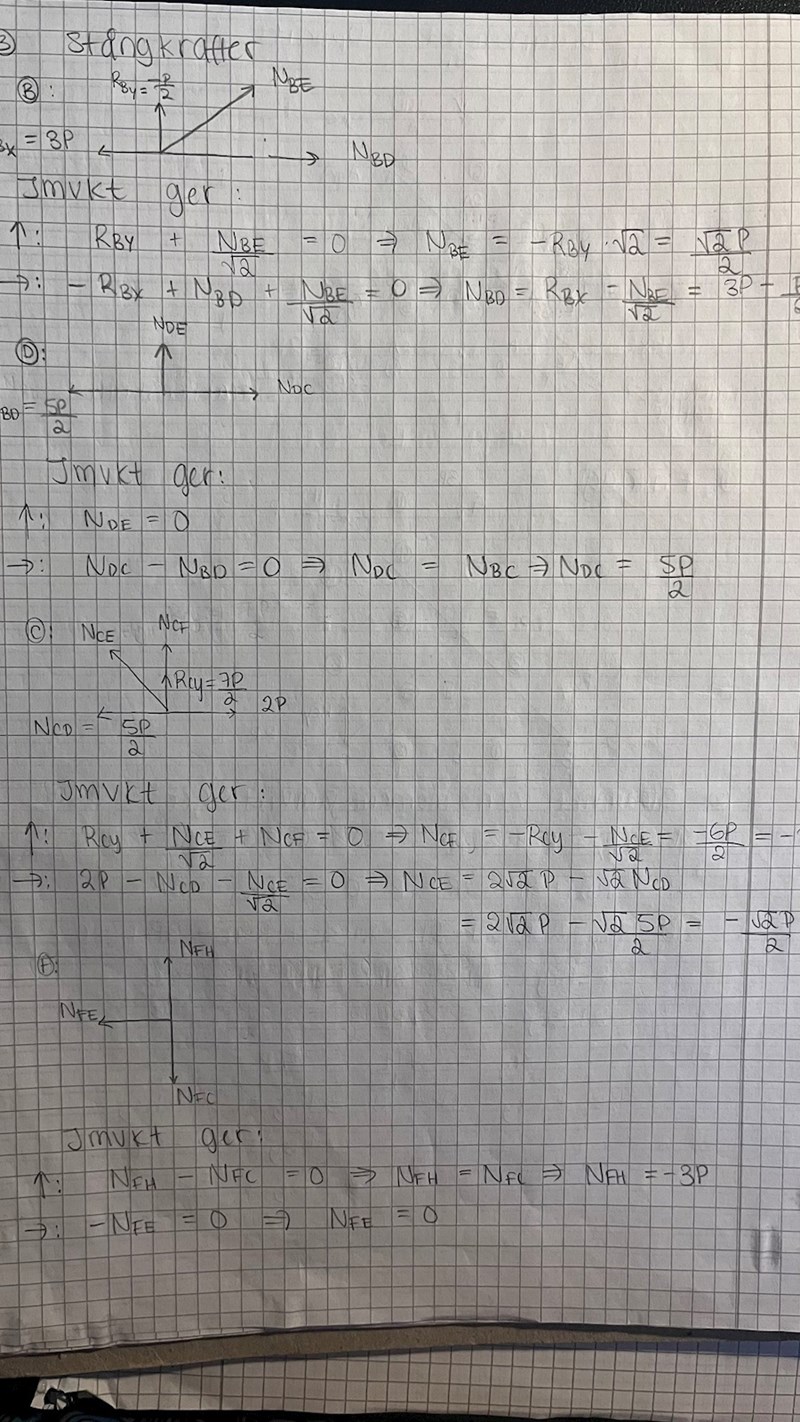 3) Stångkrafter
Ⓑ: R_BY = -P/2 N_BE
BX = 3P N_BD
Jmvkt ger:
↑: R_BY + N_BE/√2 = 0 ⇒ N_BE = -R_BY · √2 = √2P/2
→: - R_BX + N_BD + N_BE/√2 = 0 ⇒ N_BD = R_BX - N_BE/√2 = 3P -
N_DE
Ⓓ: N_DC
BD = 5P/2
Jmvkt ger:
↑: N_DE = 0
→: N_DC - N_BD = 0 ⇒ N_DC = N_BC ⇒ N_DC = 5P/2
Ⓒ: N_CE N_CF
R_CY = 7P/2 2P
N_CD = 5P/2
Jmvkt ger:
↑: R_CY + N_CE/√2 + N_CF = 0 ⇒ N_CF = -R_CY - N_CE/√2 = -6P/2 = -
→: 2P - N_CD - N_CE/√2 = 0 ⇒ N_CE = 2√2 P - √2 N_CD
= 2√2 P - √2 5P/2 = - √2P/2
Ⓕ: N_FH
N_FE
N_FC
Jmvkt ger:
↑: N_FH - N_FC = 0 ⇒ N_FH = N_FC ⇒ N_FH = -3P
→: -N_FE = 0 ⇒ N_FE = 0